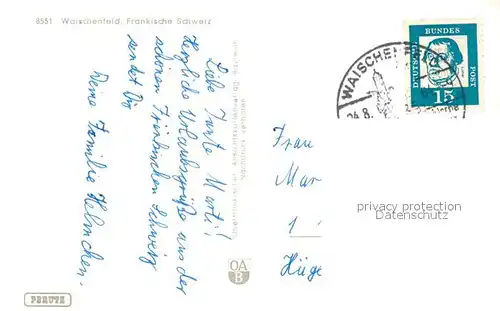 8551 Waischenfeld, Fränkische Schweiz
Liebe Tante Marti!
Herzliche Urlaubsgrüße aus der
schönen Fränkischen Schweiz
sendet Dir
Deine Familie Helmchen.
Nachdruck verboten
OA
B
PERUTZ
WAISCHEN
24.8.
DEUTSCHE
BUNDES
POST
15
Frau
Mar
1
Hüge
privacy protection
Datenschutz